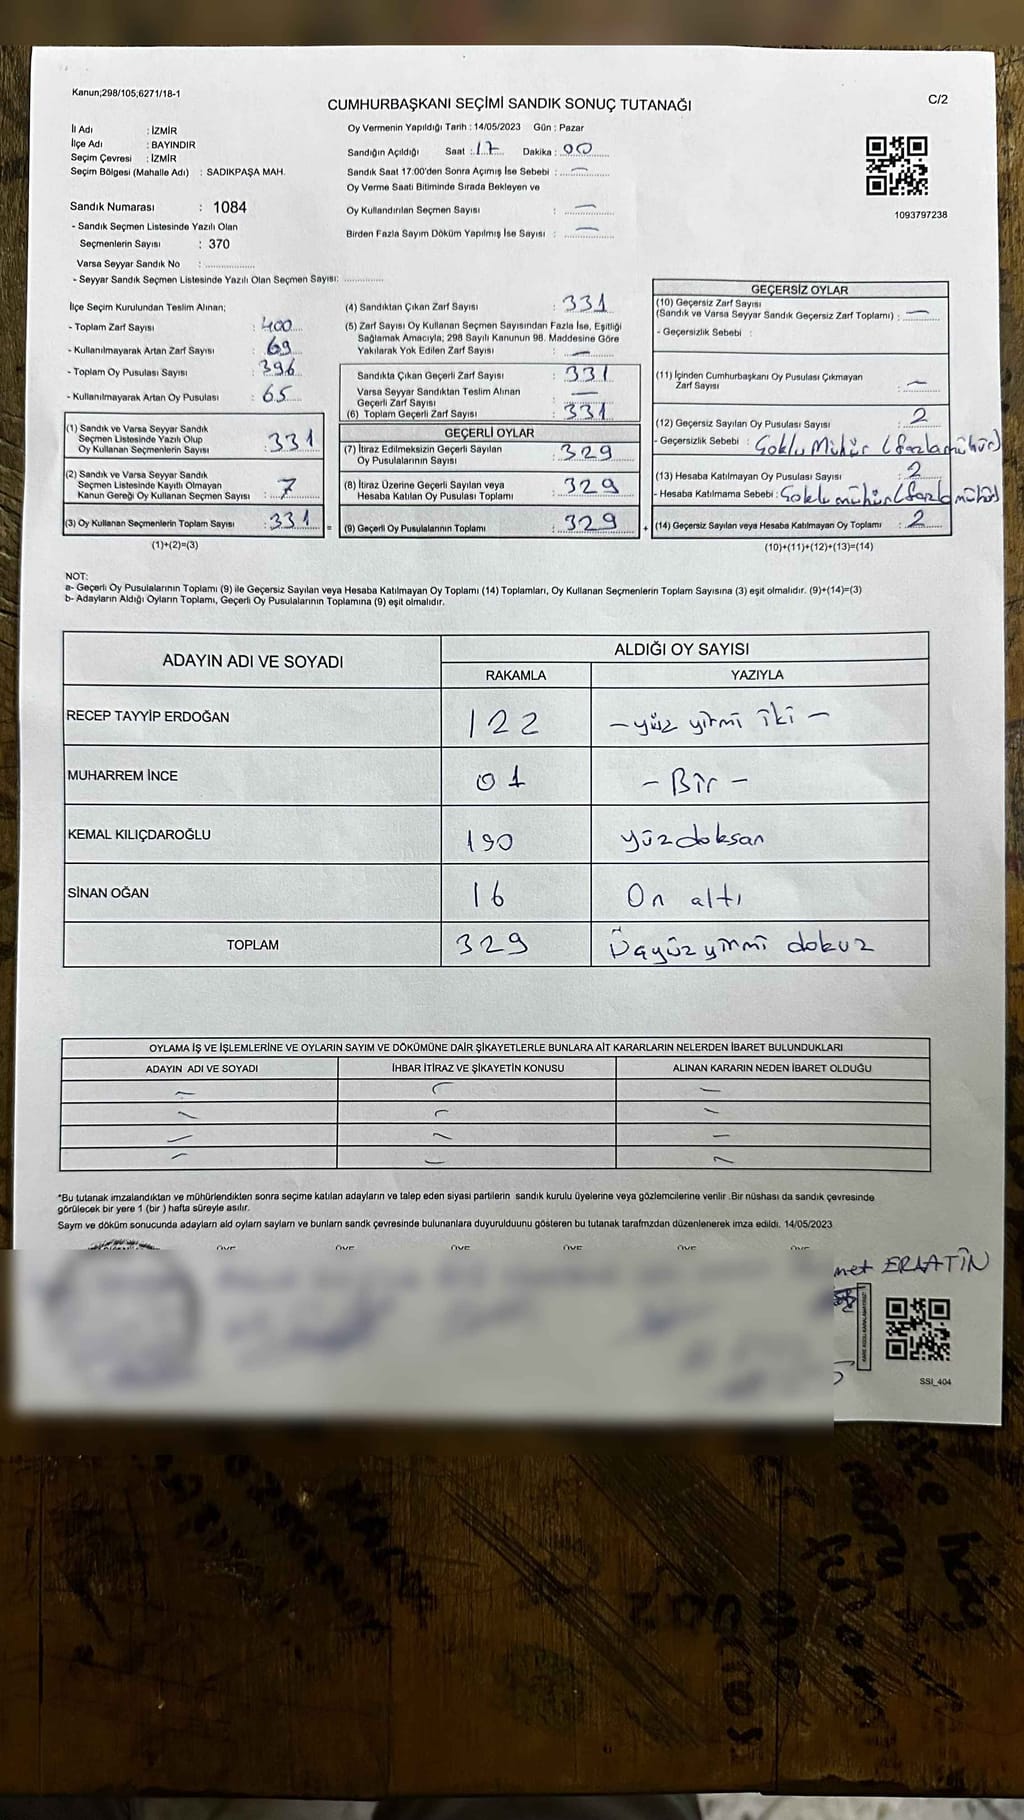 Kanun;298/105;6271/18-1
CUMHURBAŞKANI SEÇİMİ SANDIK SONUÇ TUTANAĞI
C/2
İl Adı : İZMİR
İlçe Adı : BAYINDIR
Seçim Çevresi : İZMİR
Seçim Bölgesi (Mahalle Adı) : SADIKPAŞA MAH.
Sandık Numarası : 1084
- Sandık Seçmen Listesinde Yazılı Olan
Seçmenlerin Sayısı : 370
Varsa Seyyar Sandık No :
- Seyyar Sandık Seçmen Listesinde Yazılı Olan Seçmen Sayısı:
Oy Vermenin Yapıldığı Tarih : 14/05/2023 Gün : Pazar
Sandığın Açıldığı Saat : 17 Dakika : 00
Sandık Saat 17:00'den Sonra Açımış İse Sebebi : —
Oy Verme Saati Bitiminde Sırada Bekleyen ve
Oy Kullandırılan Seçmen Sayısı : —
Birden Fazla Sayım Döküm Yapılmış İse Sayısı : —
1093797238
İlçe Seçim Kurulundan Teslim Alınan;
- Toplam Zarf Sayısı : 400
- Kullanılmayarak Artan Zarf Sayısı : 69
- Toplam Oy Pusulası Sayısı : 396
- Kullanılmayarak Artan Oy Pusulası : 65
(1) Sandık ve Varsa Seyyar Sandık
Seçmen Listesinde Yazılı Olup
Oy Kullanan Seçmenlerin Sayısı : 331
(2) Sandık ve Varsa Seyyar Sandık
Seçmen Listesinde Kayıtlı Olmayan
Kanun Gereği Oy Kullanan Seçmen Sayısı : 7
(3) Oy Kullanan Seçmenlerin Toplam Sayısı : 331
(1)+(2)=(3)
(4) Sandıktan Çıkan Zarf Sayısı : 331
(5) Zarf Sayısı Oy Kullanan Seçmen Sayısından Fazla İse, Eşitliği
Sağlamak Amacıyla; 298 Sayılı Kanunun 98. Maddesine Göre
Yakılarak Yok Edilen Zarf Sayısı : —
Sandıkta Çıkan Geçerli Zarf Sayısı : 331
Varsa Seyyar Sandıktan Teslim Alınan
Geçerli Zarf Sayısı : —
(6) Toplam Geçerli Zarf Sayısı : 331
GEÇERLİ OYLAR
(7) İtiraz Edilmeksizin Geçerli Sayılan
Oy Pusulalarının Sayısı : 329
(8) İtiraz Üzerine Geçerli Sayılan veya
Hesaba Katılan Oy Pusulası Toplamı : 329
= (9) Geçerli Oy Pusulalarının Toplamı : 329 +
GEÇERSİZ OYLAR
(10) Geçersiz Zarf Sayısı
(Sandık ve Varsa Seyyar Sandık Geçersiz Zarf Toplamı) : —
- Geçersizlik Sebebi :
(11) İçinden Cumhurbaşkanı Oy Pusulası Çıkmayan
Zarf Sayısı : —
(12) Geçersiz Sayılan Oy Pusulası Sayısı : 2
- Geçersizlik Sebebi : Çoklu Mühür (fazla mühür)
(13) Hesaba Katılmayan Oy Pusulası Sayısı : 2
- Hesaba Katılmama Sebebi : Çoklu mühür (fazla mühür)
(14) Geçersiz Sayılan veya Hesaba Katılmayan Oy Toplamı : 2
(10)+(11)+(12)+(13)=(14)
NOT:
a- Geçerli Oy Pusulalarının Toplamı (9) ile Geçersiz Sayılan veya Hesaba Katılmayan Oy Toplamı (14) Toplamları, Oy Kullanan Seçmenlerin Toplam Sayısına (3) eşit olmalıdır. (9)+(14)=(3)
b- Adayların Aldığı Oyların Toplamı, Geçerli Oy Pusulalarının Toplamına (9) eşit olmalıdır.
ADAYIN ADI VE SOYADI ALDIĞI OY SAYISI
RAKAMLA YAZIYLA
RECEP TAYYİP ERDOĞAN 122 – yüz yirmi iki –
MUHARREM İNCE 01 – Bir –
KEMAL KILIÇDAROĞLU 190 yüz doksan
SİNAN OĞAN 16 On altı
TOPLAM 329 Üçyüz yirmi dokuz
OYLAMA İŞ VE İŞLEMLERİNE VE OYLARIN SAYIM VE DÖKÜMÜNE DAİR ŞİKAYETLERLE BUNLARA AİT KARARLARIN NELERDEN İBARET BULUNDUKLARI
ADAYIN ADI VE SOYADI İHBAR İTİRAZ VE ŞİKAYETİN KONUSU ALINAN KARARIN NEDEN İBARET OLDUĞU
*Bu tutanak imzalandıktan ve mühürlendikten sonra seçime katılan adayların ve talep eden siyasi partilerin sandık kurulu üyelerine veya gözlemcilerine verilir .Bir nüshası da sandık çevresinde
görülecek bir yere 1 (bir ) hafta süreyle asılır.
Saym ve döküm sonucunda adaylarn ald oylarn saylarn ve bunlarn sandk çevresinde bulunanlara duyurulduunu gösteren bu tutanak tarafmzdan düzenlenerek imza edildi. 14/05/2023
SSI_404